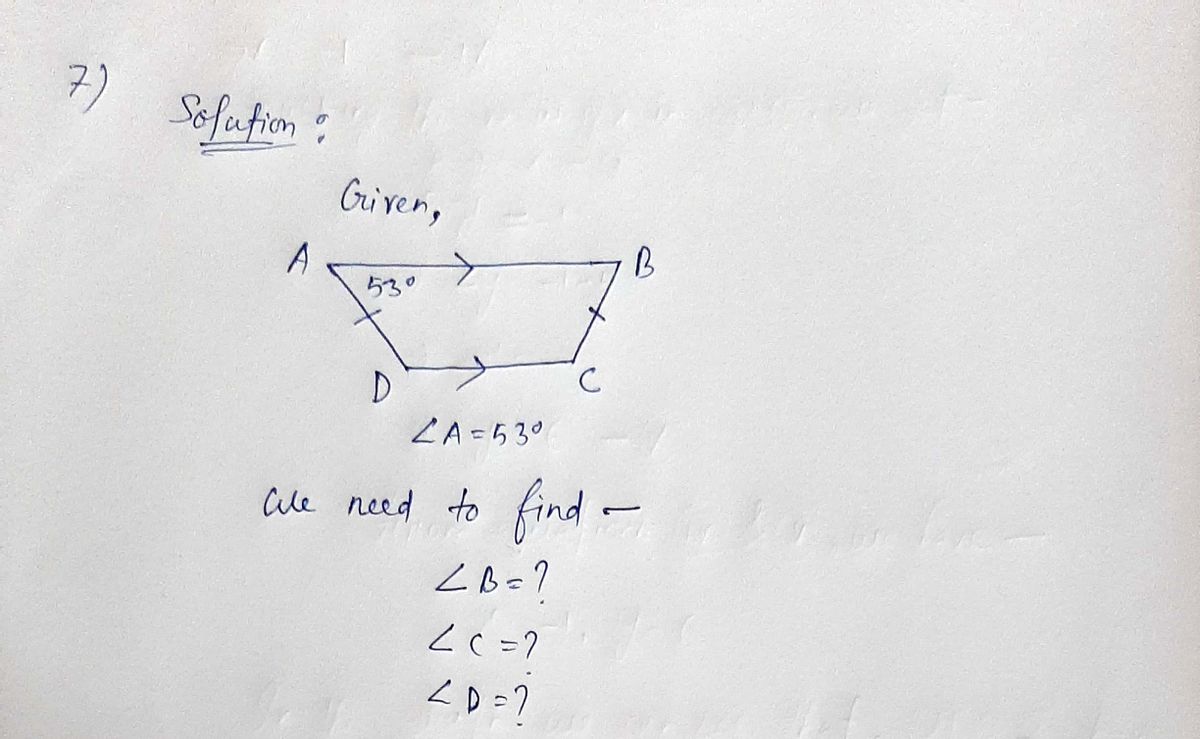 7)
Solution :
Given,
A B
53°
D C
∠A=53°
We need to find -
∠B=?
∠C=?
∠D=?